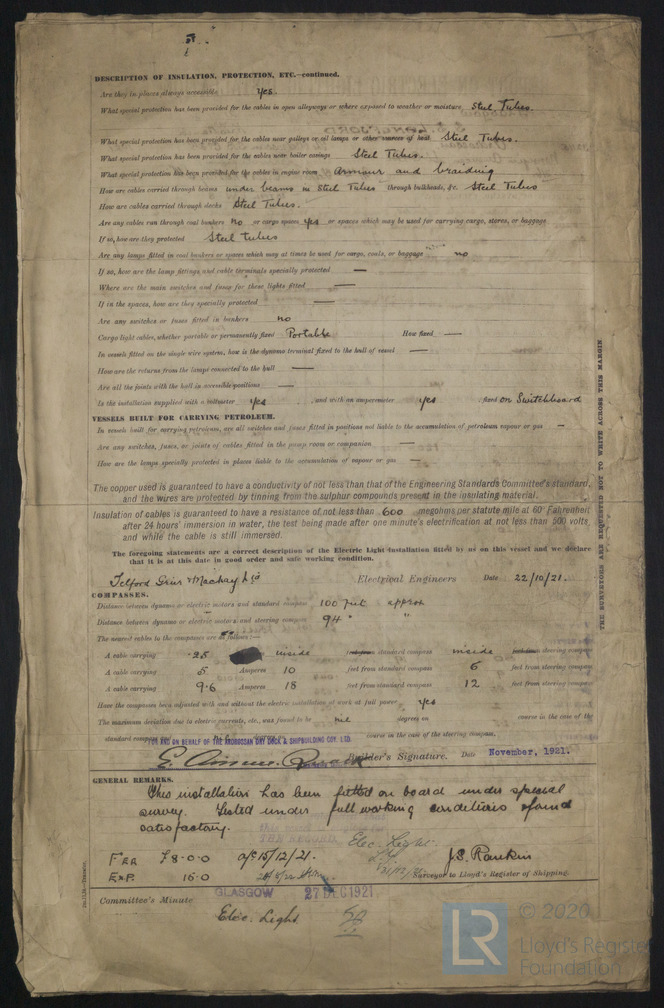 DESCRIPTION OF INSULATION, PROTECTION, ETC.—continued.
Are they in places always accessible Yes.
What special protection has been provided for the cables in open alleyways or where exposed to weather or moisture Steel Tubes.
What special protection has been provided for the cables near galleys or oil lamps or other sources of heat Steel Tubes.
What special protection has been provided for the cables near boiler casings Steel Tubes.
What special protection has been provided for the cables in engine room armour and braiding
How are cables carried through beams under beams in Steel Tubes through bulkheads, &c. Steel Tubes
How are cables carried through decks Steel Tubes.
Are any cables run through coal bunkers no or cargo spaces yes or spaces which may be used for carrying cargo, stores, or baggage
If so, how are they protected Steel tubes
Are any lamps fitted in coal bunkers or spaces which may at times be used for cargo, coals, or baggage no
If so, how are the lamp fittings and cable terminals specially protected —
Where are the main switches and fuses for these lights fitted —
If in the spaces, how are they specially protected —
Are any switches or fuses fitted in bunkers no
Cargo light cables, whether portable or permanently fixed Portable How fixed —
In vessels fitted on the single wire system, how is the dynamo terminal fixed to the hull of vessel —
How are the returns from the lamps connected to the hull —
Are all the joints with the hull in accessible positions —
Is the installation supplied with a voltmeter yes and with an amperemeter yes , fixed on Switchboard
VESSELS BUILT FOR CARRYING PETROLEUM.
In vessels built for carrying petroleum, are all switches and fuses fitted in positions not liable to the accumulation of petroleum vapour or gas —
Are any switches, fuses, or joints of cables fitted in the pump room or companion —
How are the lamps specially protected in places liable to the accumulation of vapour or gas —
The copper used is guaranteed to have a conductivity of not less than that of the Engineering Standards Committee's standard,
and the wires are protected by tinning from the sulphur compounds present in the insulating material.
Insulation of cables is guaranteed to have a resistance of not less than 600 megohms per statute mile at 60° Fahrenheit
after 24 hours' immersion in water, the test being made after one minute's electrification at not less than 500 volts,
and while the cable is still immersed.
The foregoing statements are a correct description of the Electric Light Installation fitted by us on this vessel and we declare
that it is at this date in good order and safe working condition.
Telford Grier & Mackay Ld Electrical Engineers Date 22/10/21.
COMPASSES.
Distance between dynamo or electric motors and standard compass 100 feet approx
Distance between dynamo or electric motors and steering compass 94 " "
The nearest cables to the compasses are as follows:—
A cable carrying .25 inside feet from standard compass inside feet from steering compass
A cable carrying 5 Amperes 10 feet from standard compass 6 feet from steering compass
A cable carrying 9.6 Amperes 18 feet from standard compass 12 feet from steering compass
Have the compasses been adjusted with and without the electric installation at work at full power yes
The maximum deviation due to electric currents, etc., was found to be nil degrees on course in the case of the
standard compass and nil degrees on course in the case of the steering compass.
FOR AND ON BEHALF OF THE ARDROSSAN DRY DOCK & SHIPBUILDING COY. LTD.
Builder's Signature. Date November, 1921.
GENERAL REMARKS.
This installation has been fitted on board under special
survey. Tested under full working conditions & found
satisfactory.
Elec. Light.
FEE £8.0.0 a/c 15/12/21. J.S. Rankin
EXP. 16.0 Surveyor to Lloyd's Register of Shipping.
Committee's Minute GLASGOW 27 DEC 1921
Elec. Light
THE SURVEYORS ARE REQUESTED NOT TO WRITE ACROSS THIS MARGIN
LR © 2020
Lloyd's Register
Foundation